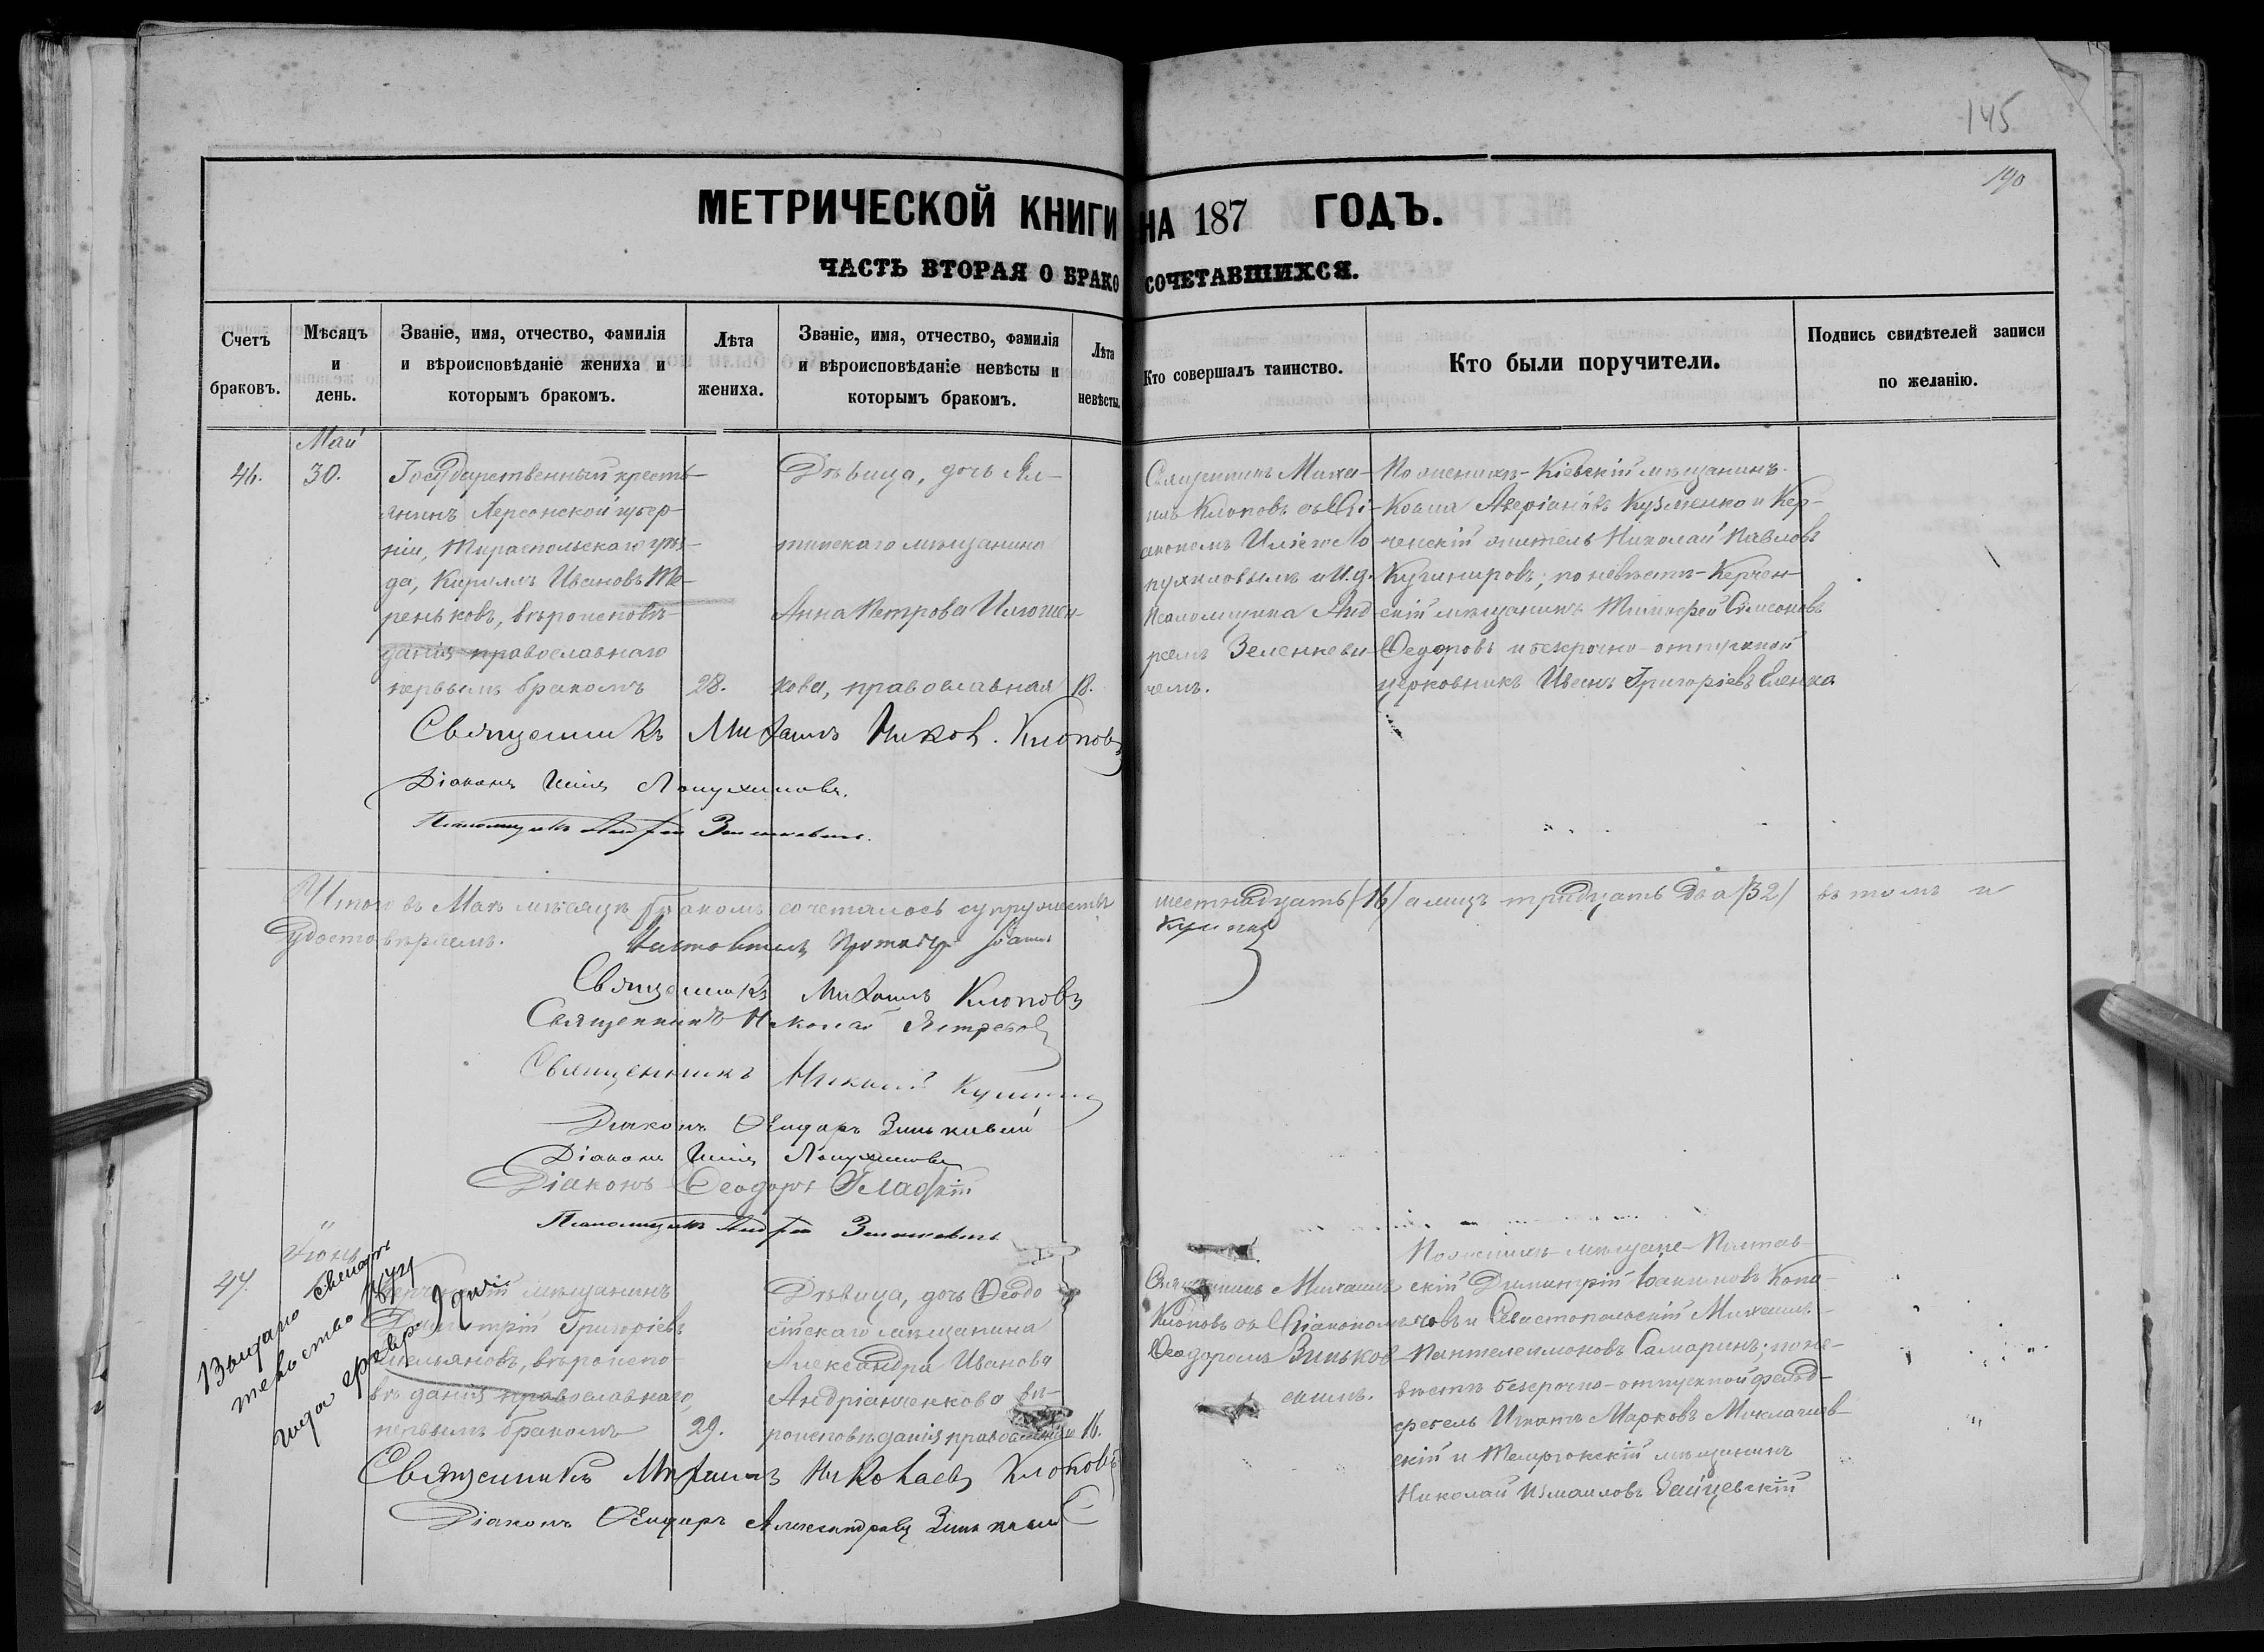 145
190
МЕТРИЧЕСКОЙ КНИГИ НА 187 ГОДЪ.
ЧАСТЬ ВТОРАЯ О БРАКОСОЧЕТАВШИХСЯ.
Счетъ браковъ.
Мѣсяцъ и день.
Званіе, имя, отчество, фамилія и вѣроисповѣданіе жениха и которымъ бракомъ.
Лѣта жениха.
Званіе, имя, отчество, фамилія и вѣроисповѣданіе невѣсты и которымъ бракомъ.
Лѣта невѣсты.
Кто совершалъ таинство.
Кто были поручители.
Подпись свидѣтелей записи по желанію.
Май
46.
30.
Государственный кресть-
янинъ Херсонской губер-
ніи, Тираспольскаго уѣз-
да, Кириллъ Ивановъ Те-
реньковъ, вѣроисповѣ-
данія православнаго
первымъ бракомъ
28.
Дѣвица, дочь Ял-
тинскаго мѣщанина
Анна Петрова
кова, православная
18.
Священникъ Миха-
илъ Клоповъ съ Ді-
акономъ Иліею Ло
пухиновымъ и И. д.
Псаломщика Анд
реемъ Зеленкеви
чемъ.
По женихѣ - Кіевскій мѣщанинъ
Косма Аверіановъ Кузменко и Кер-
ченскій житель Николай Павловъ
Кушнировъ; по невѣстѣ - Керчен-
скій мѣщанинъ Тимофей Симоновъ
Ѳедоровъ и безсрочно-отпускной
церковникъ Иванъ Григоріевъ
Священникъ Михаилъ Никол. Клоповъ
Діаконъ Илія Лопухиновъ.
Псаломщикъ Андрей Зеленкевичъ.
Итого въ Маѣ мѣсяцѣ бракомъ сочеталось супружествъ шестнадцать (16) а лицъ тридцать два (32) въ томъ и
удостовѣряемъ.
Настоятель Іоаннъ
Священникъ Михаилъ Клоповъ
Священникъ Николай Ястребов
Священникъ Николай
Діаконъ Ѳеодоръ Зиньковскій
Діаконъ Илія Лопухиновъ
Діаконъ Ѳеодоръ Гладкій
Псаломщикъ Андрей Зеленкевичъ
Іюнь
47.
Выдано свидѣ
тельство 1874
года февр.
Керченскій мѣщанинъ
Димитрій Григоріевъ
Емельяновъ, вѣроиспо-
вѣданія православнаго,
первымъ бракомъ
29.
Дѣвица, дочь Ѳеодо
сійскаго мѣщанина
Александра Иванова
Андріанченкова вѣ-
роисповѣданія православнаго
16.
Священникъ Михаилъ
Клоповъ съ Діакономъ
Ѳеодоромъ Зиньков
скимъ.
По женихѣ мѣщане - Полтав-
скій Димитрій Іоакимовъ Копа-
човъ и Севастопольскій Михаилъ
Пантелеимоновъ Самаринъ; по не-
вѣстѣ безсрочно-отпускной фельд-
фебель Игнатъ Марковъ
скій и Темрюкскій мѣщанинъ
Николай Измаиловъ Зайцевскій
Священникъ Михаилъ Николаевъ Клоповъ
Діаконъ Ѳеодоръ Александровъ Зиньковскій